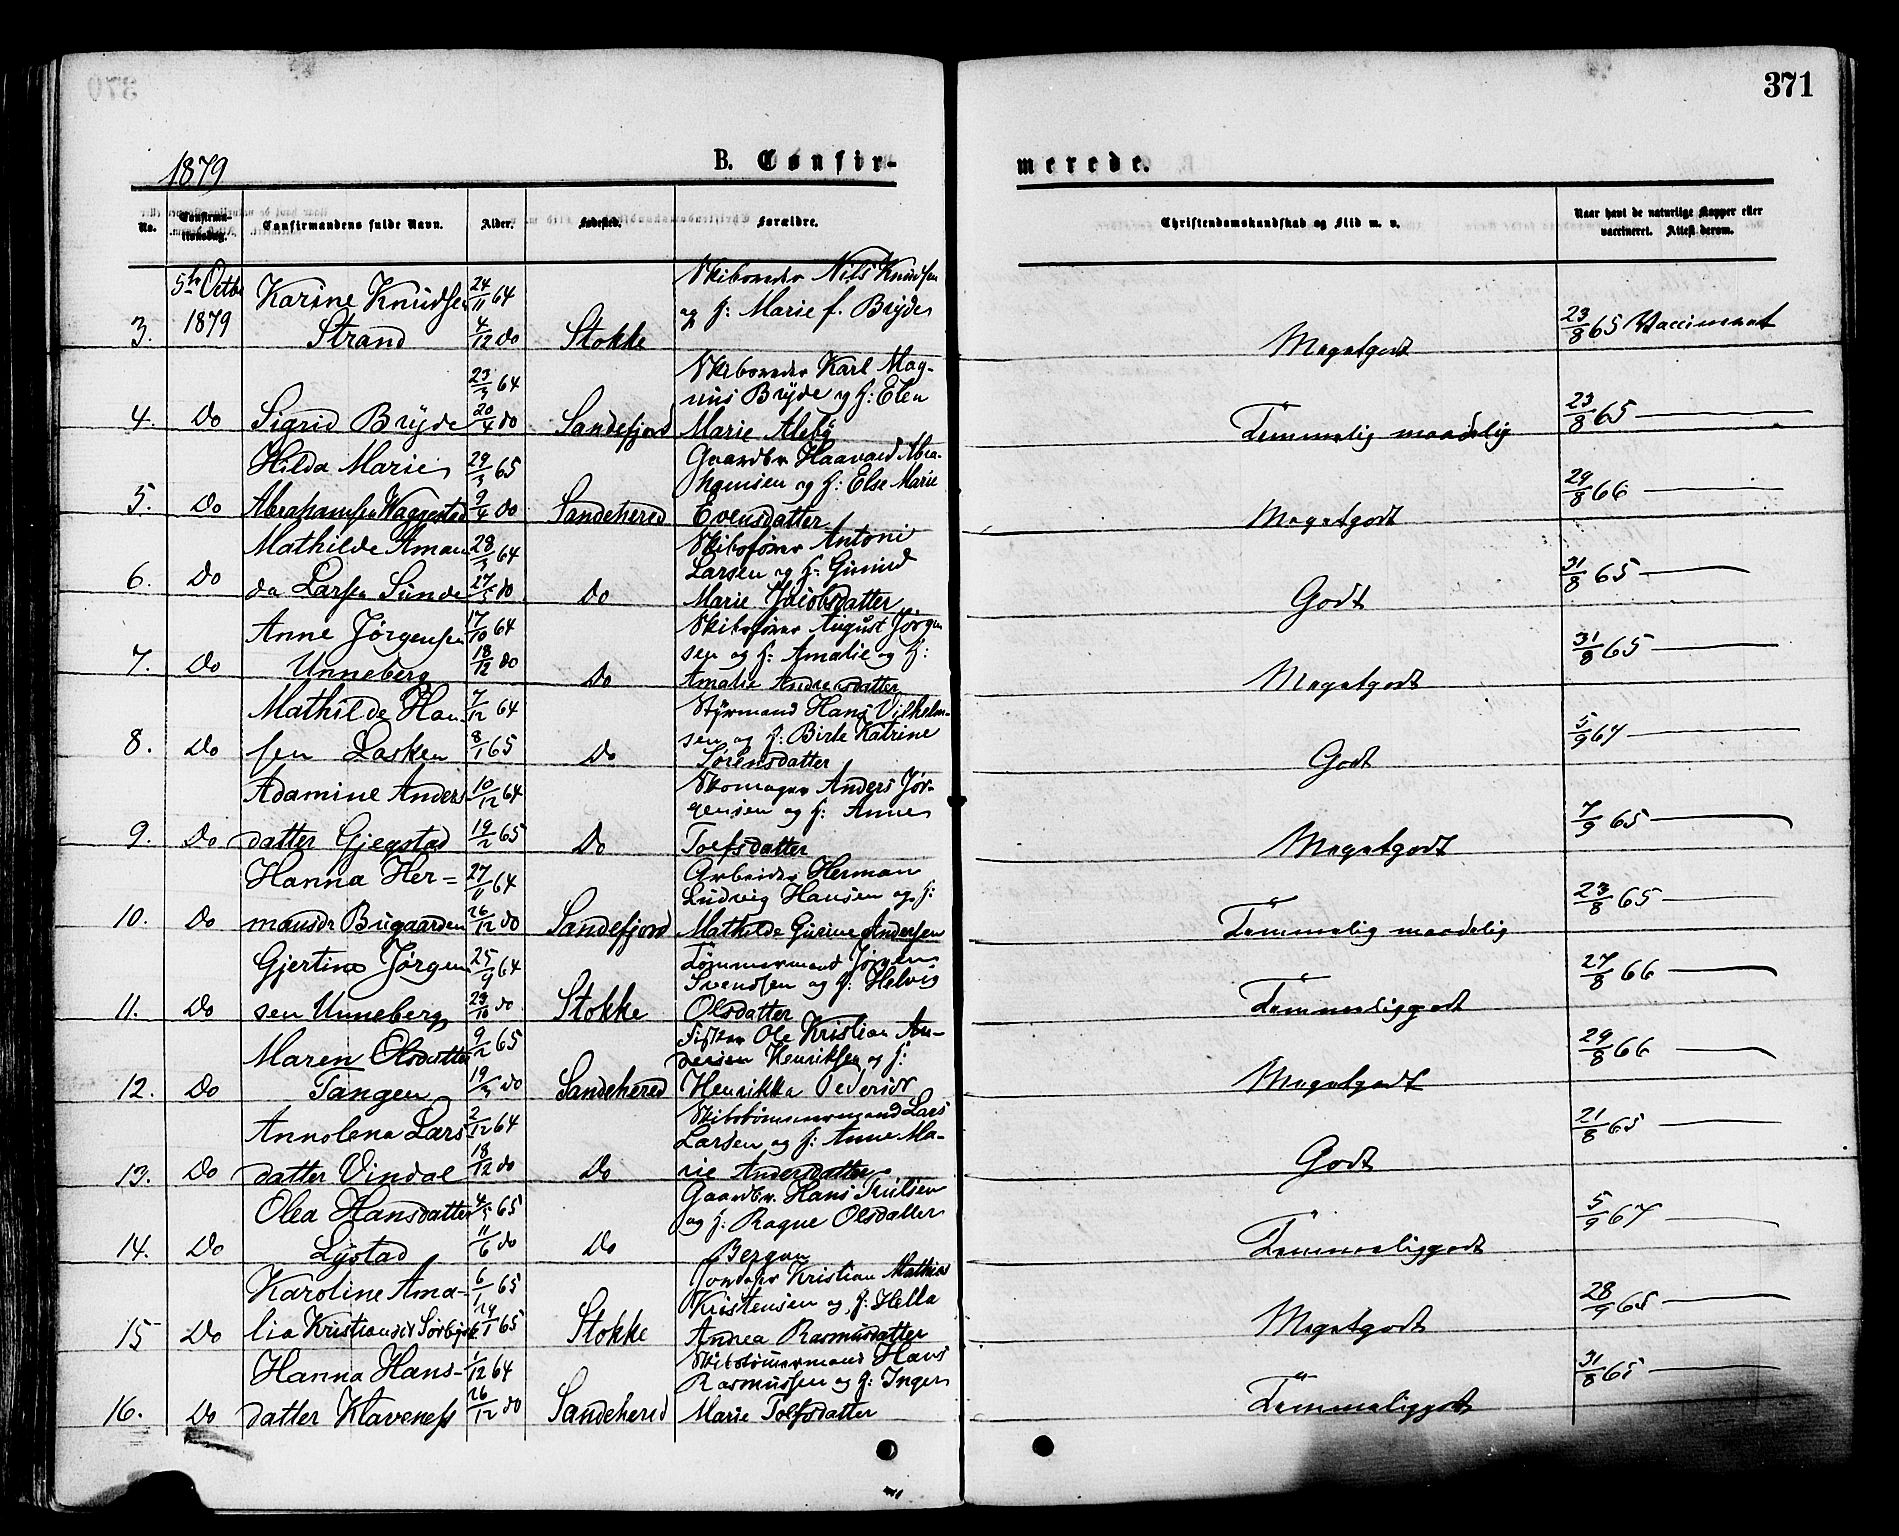 371
1879
B. Confir-
merede.
No.
Confirma-
tionsdag.
Confirmandens fulde Navn.
Alder.
Fødested.
Forældre.
Christendomskundskab og Flid m. v.
Naar havt de naturlige Kopper eller
vaccineret. Attest derom.
3. 5te Octbr 1879
Karine Knudsen
Strand
24/11 64
4/12 do
Stokke
Skibsreder Nils Knudsen
og H: Marie f. Bryde
Megetgodt
23/8 65 Vaccineret
4. Do
Sigrid Bryde
23/3 64
20/4 do
Sandefjord
Skibsreder Karl Mag-
nus Bryde og H: Elen
Marie Aleby
Temmelig maadelig
23/8 65
5. Do
Hilda Marie
Abrahamsen Waggestad
29/3 65
9/4 do
Sandehered
Gaardbr Haavard Abra-
hamsen og H: Else Marie
Evensdatter
Megetgodt
29/8 66
6. Do
Mathilde Aman
da Larsen Sunde
28/3 64
27/5 do
Do
Skibsfører Antoni
Larsen og H: Gunild
Marie Jacobsdatter
Godt
31/8 65
7. Do
Anne Jørgensen
Unneberg
17/10 64
18/12 do
Do
Skibsfører August Jørgen
sen og H: Amalie og H:
Amalie Andrea sdatter
Megetgodt
31/8 65
8. Do
Mathilde Han
sen Lasken
7/12 64
8/1 65
Do
Styrmand Hans Vilhelm-
sen og H: Birte Katrine
Sørensdatter
Godt
5/9 67
9. Do
Adamine Anders
datter Gjegstad
10/12 64
19/2 65
Do
Skomager Anders Jør-
gensen og H: Anne
Tolfsdatter
Megetgodt
7/9 65
10. Do
Hanna Her=
mansdr Bugaarden
27/11 64
26/12 do
Sandefjord
Arbeider Herman
Ludvig Hansen og H:
Mathilde Gurine Andersen
Temmelig maadelig
23/8 65
11. Do
Gjertine Jørgen
sen Unneberg
25/9 64
23/10 do
Stokke
Tømmermand Jørgen
Svendsen og H: Helvig
Olsdatter
Temmeliggodt
27/8 66
12. Do
Maren Olsdatter
Tangen
9/2 65
19/3 do
Sandehered
Fisker Ole Kristian An-
dersen Henriksen og H:
Henrikka Pedersdr
Megetgodt
29/8 66
13. Do
Annolena Lars
datter Vindal
2/12 64
18/12 do
Do
Skibstømmermand Lars
Larsen og H: Anne Ma-
rie Andersdatter
Godt
21/8 65
14. Do
Olea Hansdatter
Lystad
4/5 65
11/6 do
Do
Gaardbr. Hans Trulsen
og H: Ragne Olsdatter
Bergan
Temmeliggodt
5/9 67
15 Do
Karoline Ama-
lia Kristiansdr Sørby
6/1 65
Stokke
Jordeier Kristian Mathias
Kristensen og H: Hella
Andrea Rasmusdatter
Megetgodt
28/9 65
16. Do
Hanna Hans-
datter Klaveness
1/12 64
26/12 do
Sandehered
Skibstømermand Hans
Rasmussen og H: Inger
Marie Tolfsdatter
Temmeliggodt
31/8 65